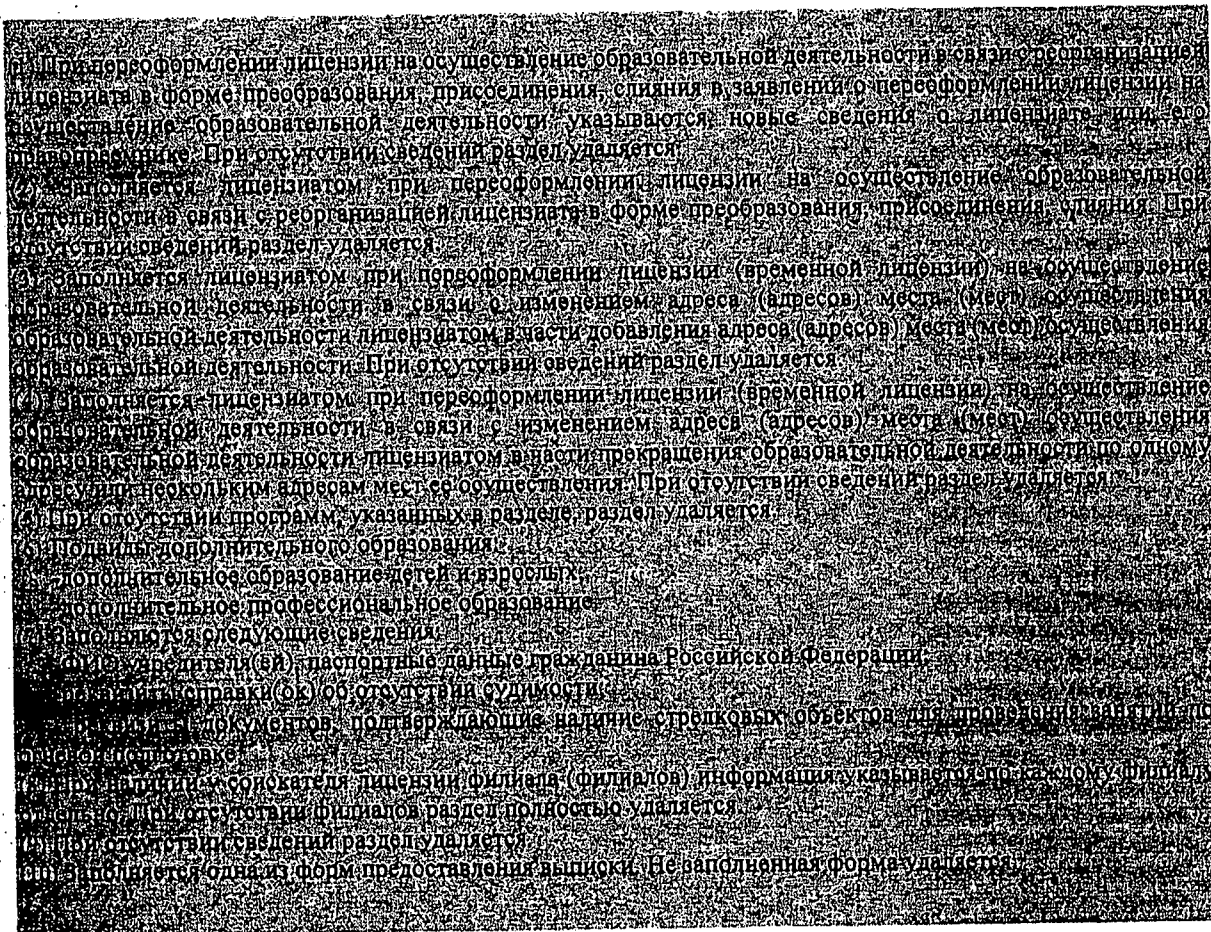 (1) При переоформлении лицензии на осуществление образовательной деятельности в связи с реорганизацией
лицензиата в форме преобразования, присоединения, слияния в заявлении о переоформлении лицензии на
осуществление образовательной деятельности указываются новые сведения о лицензиате или его
правопреемнике. При отсутствии сведений раздел удаляется.
(2) Заполняется лицензиатом при переоформлении лицензии на осуществление образовательной
деятельности в связи с реорганизацией лицензиата в форме преобразования, присоединения, слияния. При
отсутствии сведений раздел удаляется.
(3) Заполняется лицензиатом при переоформлении лицензии (временной лицензии) на осуществление
образовательной деятельности в связи с изменением адреса (адресов) места (мест) осуществления
образовательной деятельности лицензиатом в части добавления адреса (адресов) места (мест) осуществления
образовательной деятельности. При отсутствии сведений раздел удаляется.
(4) Заполняется лицензиатом при переоформлении лицензии (временной лицензии) на осуществление
образовательной деятельности в связи с изменением адреса (адресов) места (мест) осуществления
образовательной деятельности лицензиатом в части прекращения образовательной деятельности по одному
адресу или нескольким адресам мест ее осуществления. При отсутствии сведений раздел удаляется.
(5) При отсутствии программ, указанных в разделе, раздел удаляется.
(6) Подвиды дополнительного образования:
- дополнительное образование детей и взрослых;
- дополнительное профессиональное образование.
(7) Заполняются следующие сведения:
- ФИО учредителя(ей), паспортные данные гражданина Российской Федерации;
- реквизиты справки(ок) об отсутствии судимости;
- реквизиты документов, подтверждающие наличие стрелковых объектов для проведения занятий по
огневой подготовке.
(8) При наличии у соискателя лицензии филиала (филиалов) информация указывается по каждому филиалу
отдельно. При отсутствии филиалов раздел полностью удаляется.
(9) При отсутствии сведений раздел удаляется.
(10) Заполняется одна из форм предоставления выписки. Не заполненная форма удаляется.